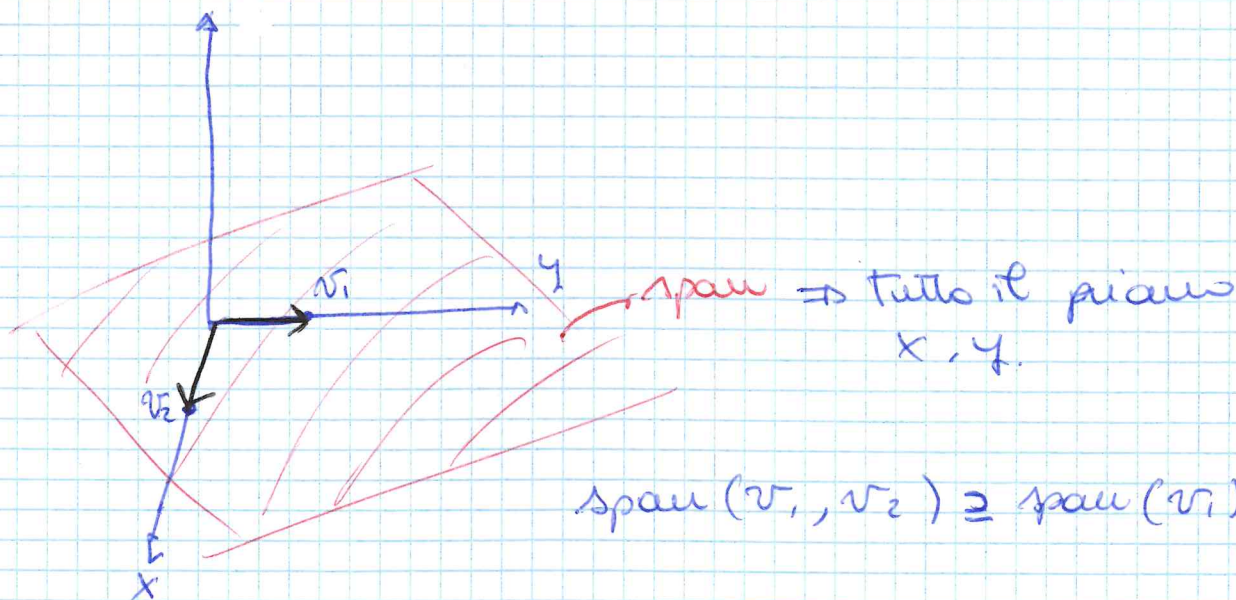 v₁
y
span ⇒ tutto il piano
x, y.
v₂
span (v₁, v₂) ⊇ span (v₁)
x